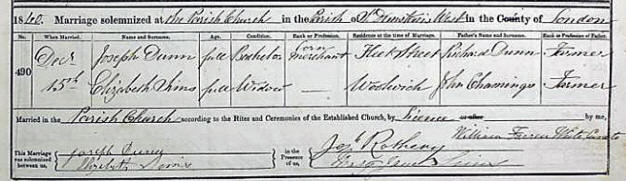 1840. Marriage solemnized at the Parish Church in the Parish of St Dunstan's West in the County of London
No. When Married. Name and Surname. Age. Condition. Rank or Profession. Residence at the time of Marriage. Father's Name and Surname. Rank or Profession of Father.
490 Decr Joseph Dunn full Bachelor Corn Merchant Fleet Street Richard Dunn Farmer
15th Elizabeth full Widow — Woolwich John Chamings Farmer
Married in the Parish Church according to the Rites and Ceremonies of the Established Church, by Licence or after by me,
William White Curate
This Marriage was solemnized between us, Joseph Dunn Elizabeth
in the Presence of us, Josh Rothery